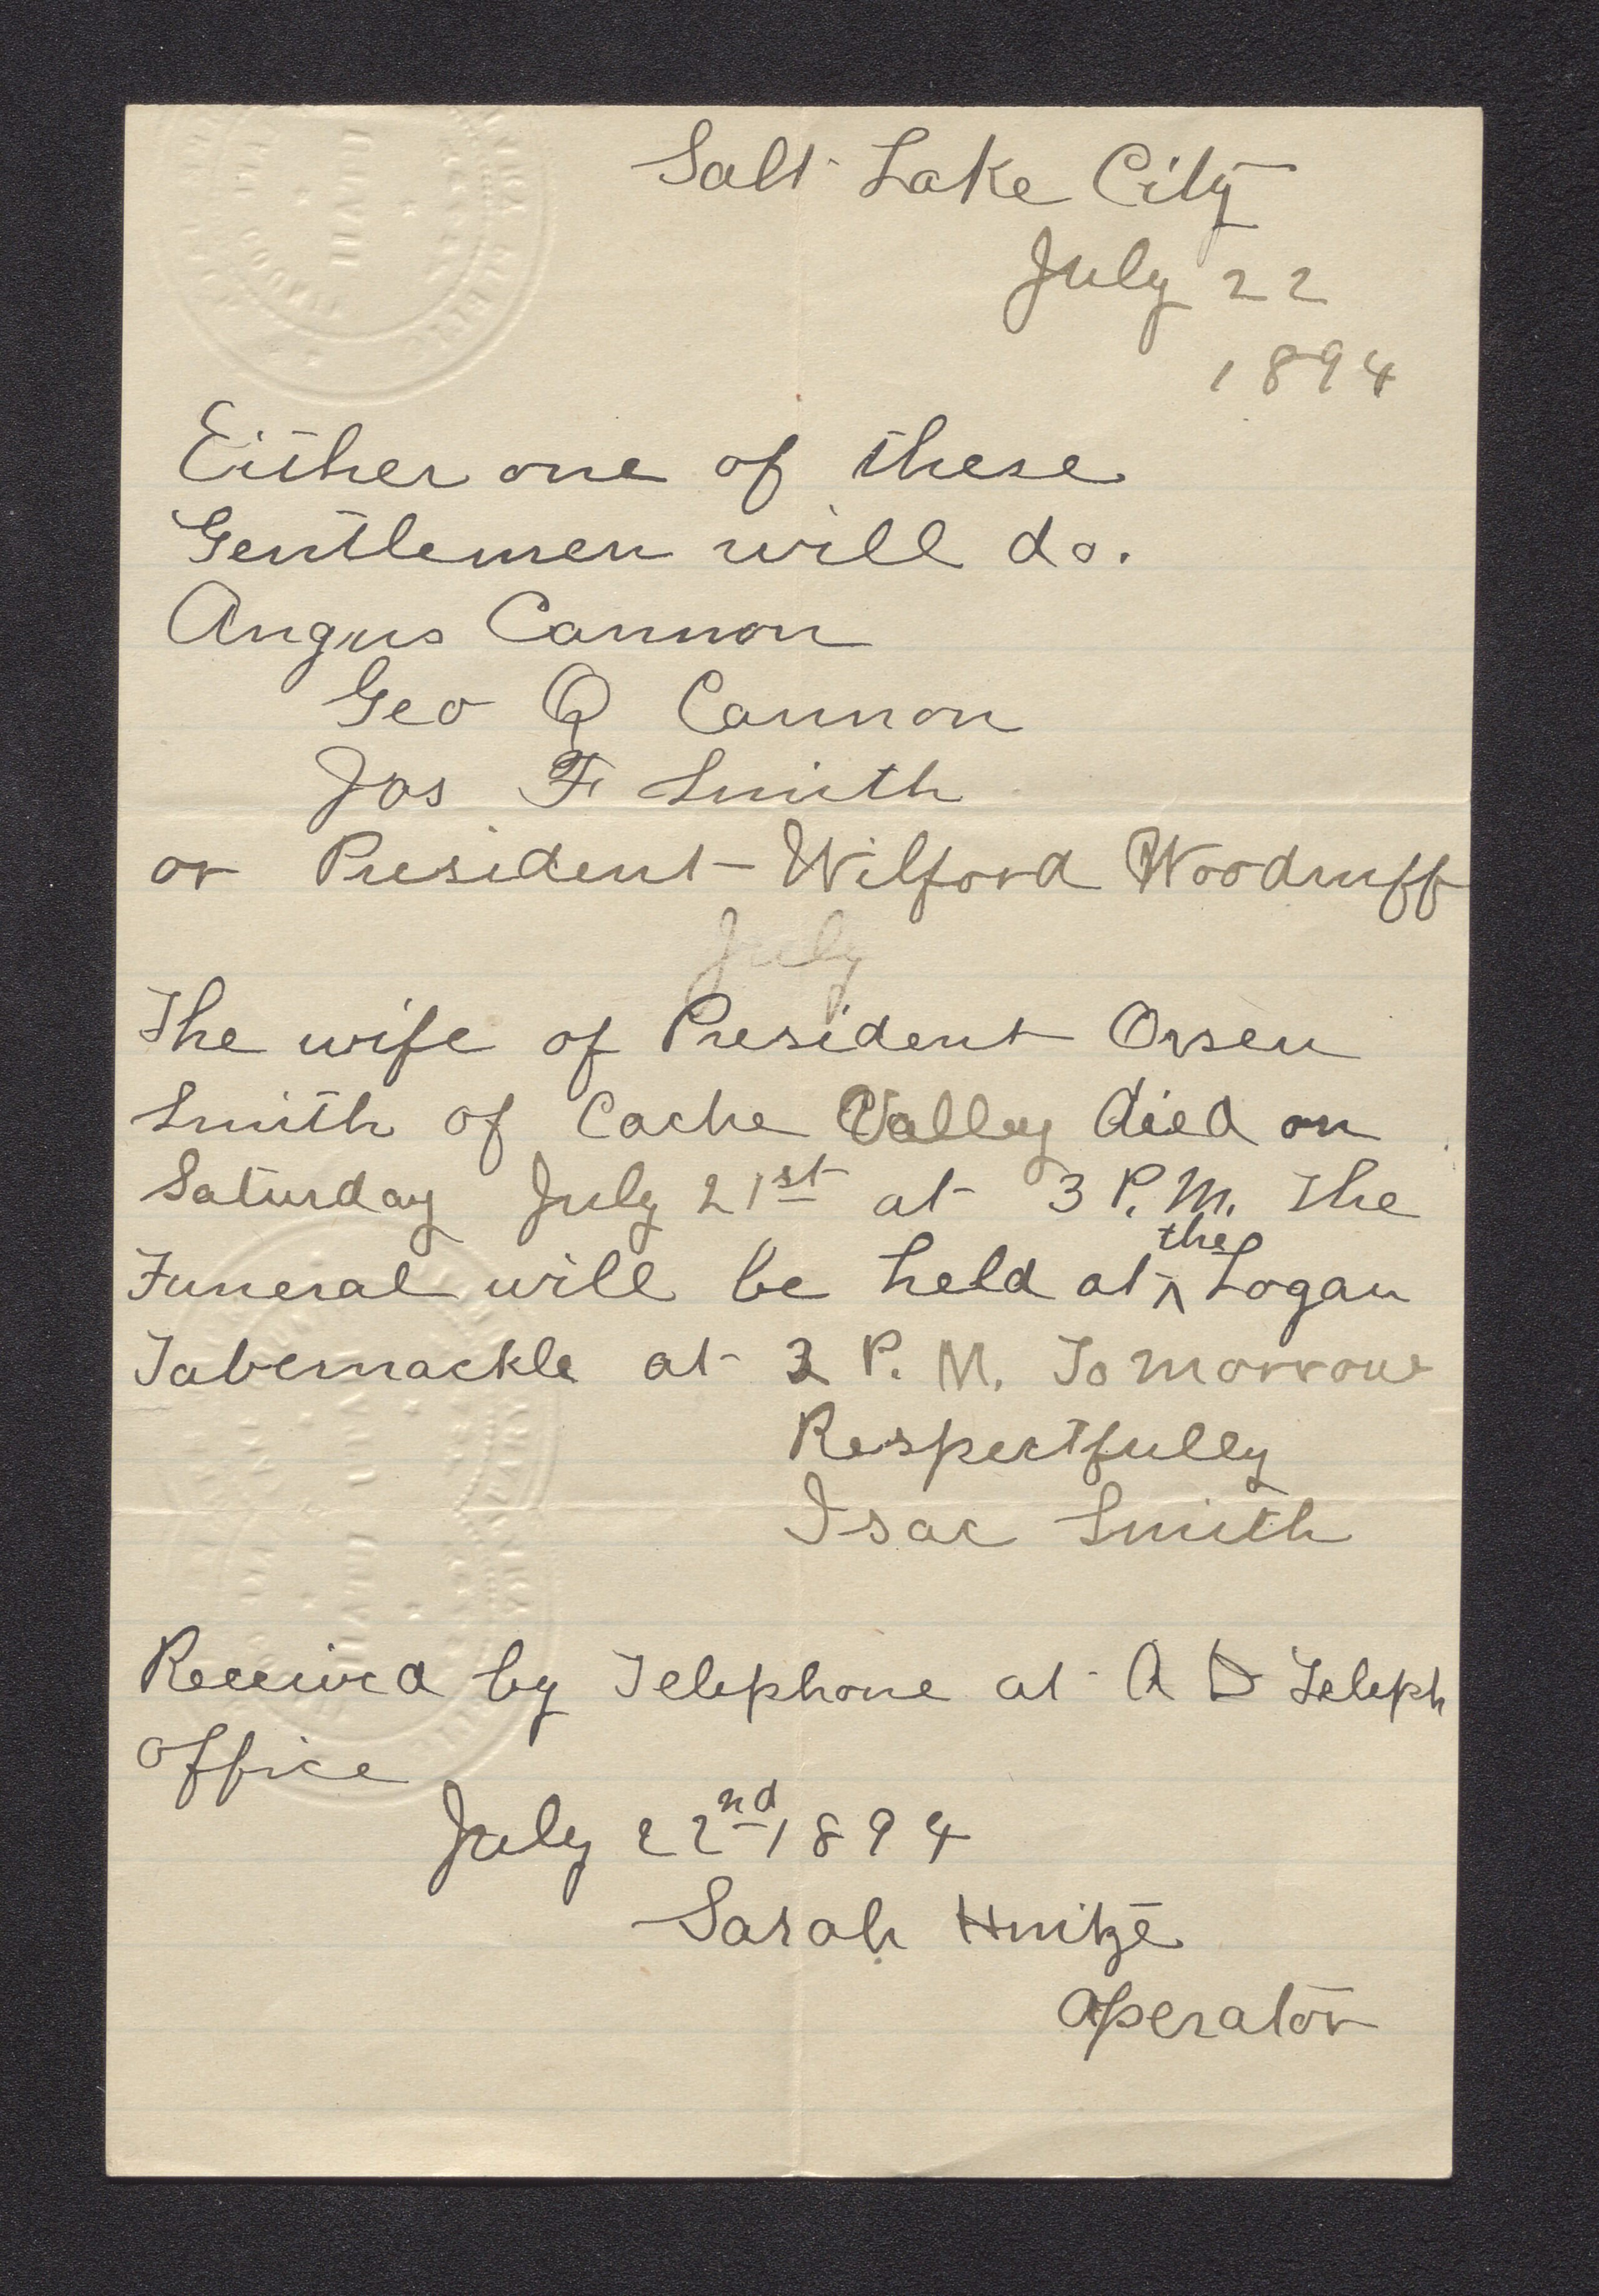 Salt Lake City
July 22
1894
Either one of these
Gentlemen will do.
Angus Cannon
Geo Q Cannon
Jos F Smith
or President Wilford Woodruff
July
The wife of President Orsen
Smith of Cache Valley died on
Saturday July 21st at 3 P.M. The
the
Funeral will be held at ^ Logan
Tabernackle at 2 P. M. To morrow
Respectfully
Isac Smith
Received by Telephone at A D Teleph
office
July 22nd 1894
Sarah
Operator